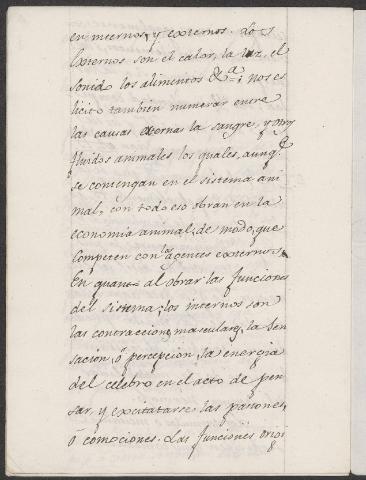 en internos, y externos. Los
Externos son el calor, la luz, el
sonido los alimentos &.ª; nos es
licito tambien numerar entre
las causas externas la sangre, y otros
fluidos animales los quales, aunq.e
se contengan en el sistema ani
mal, con todo eso obran en la
economia animal, de modo, que
competen con los agentes externos.
En quanto al obrar las funciones
del sistema; los internos son
las contracciones musculares, la sen
sacion, ó percepcion, la energia
del celebro en el acto de pen
sar, y excitatarse las pasiones,
ó comociones. Las funciones origi